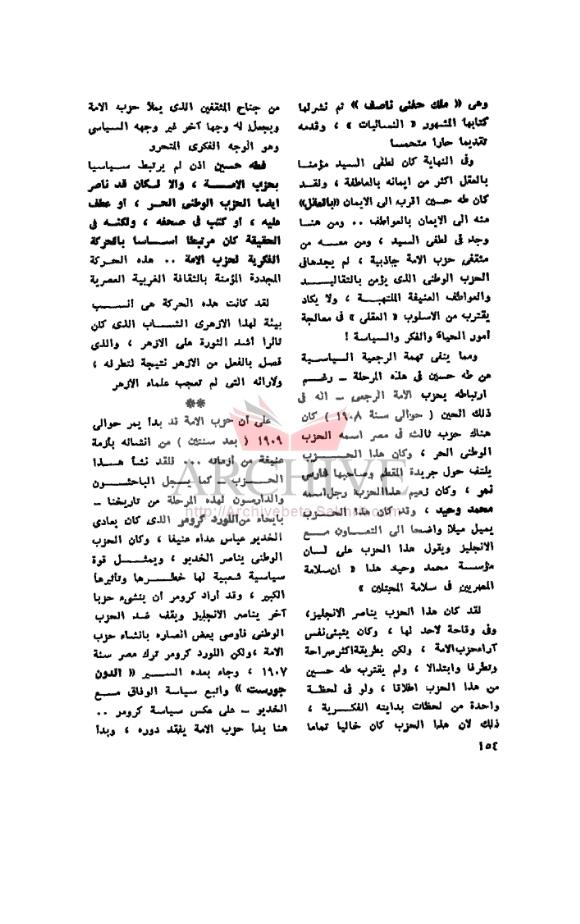 وهى « ملك حفنى ناصف » ثم نشر لها
كتابها المشهور « النسائيات » ، وقدمه
تقديما حارا متحمسا
وفى النهاية كان لطفى السيد مؤمنا
بالعقل أكثر من ايمانه بالعاطفة ، ولقد
كان طه حسين أقرب الى الايمان «بالعقل»
منه الى الايمان بالعواطف .. ومن هنا
وجد فى لطفى السيد ، ومن معه من
مثقفى حزب الامة جاذبية ، لم يجدها فى
الحزب الوطنى الذى يؤمن بالتقاليد
والعواطف العنيفة الملتهبة ، ولا يكاد
يقترب من الاسلوب « العقلى » فى معالجة
أمور الحياة والفكر والسياسة !
ومما ينفى تهمة الرجعية السياسية
عن طه حسين فى هذه المرحلة - رغم
ارتباطه بحزب الامة الرجعى - انه فى
ذلك الحين ( حوالى سنة ١٩٠٨ ) كان
هناك حزب ثالث فى مصر اسمه الحزب
الوطنى الحر ، وكان هذا الحزب
يلتف حول جريدة المقطم وصاحبها فارس
نمر ، وكان زعيم هذا الحزب رجل اسمه
محمد وحيد ، وقد كان هذا الحزب
يميل ميلا واضحا الى التعاون مع
الانجليز ويقول هذا الحزب على لسان
مؤسسة محمد وحيد هذا « ان سلامة
المصريين فى سلامة المحتلين »
لقد كان هذا الحزب يناصر الانجليز،
وفى وقاحة لاحد لها ، وكان يتبنى نفس
آراء حزب الامة ، ولكن بطريقة اكثر صراحة
وتطرفا وابتذالا ، ولم يقترب طه حسين
من هذا الحزب اطلاقا ، ولو فى لحظة
واحدة من لحظات بدايته الفكرية ،
ذلك لان هذا الحزب كان خاليا تماما
من جناح المثقفين الذى يملأ حزب الامة
ويجعل له وجها آخر غير وجهه السياسى
وهو الوجه الفكرى المتحرر
فطه حسين اذن لم يرتبط سياسيا
بحزب الامة ، والا لكان قد ناصر
ايضا الحزب الوطنى الحر ، أو عطف
عليه ، أو كتب فى صحفه ، ولكنه فى
الحقيقة كان مرتبطا أساسا بالحركة
الفكرية لحزب الامة .. هذه الحركة
المجددة المؤمنة بالثقافة الغربية العصرية
لقد كانت هذه الحركة هى أنسب
بيئة لهذا الازهرى الشاب الذى كان
ثائرا أشد الثورة على الازهر ، والذى
فصل بالفعل من الازهر نتيجة لتطرفه ،
ولآرائه التى لم تعجب علماء الازهر
**
على أن حزب الامة قد بدأ يمر حوالى
١٩٠٩ ( بعد سنتين ) من انشائه بأزمة
عنيفة من أزماته .. فلقد نشأ هذا
الحزب ، كما يسجل الباحثون
والدارسون لهذه المرحلة من تاريخنا -
بايحاء من اللورد كرومر الذى كان يعادى
الخديو عباس عداء عنيفا ، وكان الحزب
الوطنى يناصر الخديو ، ويمثل قوة
سياسية شعبية لها خطرها وتأثيرها
الكبير ، وقد أراد كرومر أن ينشىء حزبا
آخر يناصر الانجليز ويقف ضد الحزب
الوطنى فأوصى بعض أنصاره بانشاء حزب
الامة ،ولكن اللورد كرومر ترك مصر سنة
١٩٠٧ ، وجاء بعده السير « الدون
جورست » واتبع سياسة الوفاق مع
الخديو - على عكس سياسة كرومر ..
هنا بدأ حزب الامة يفقد دوره ، وبدأ
١٥٤
ARCHIVE
http://Archivebeta.Sakhrit.com